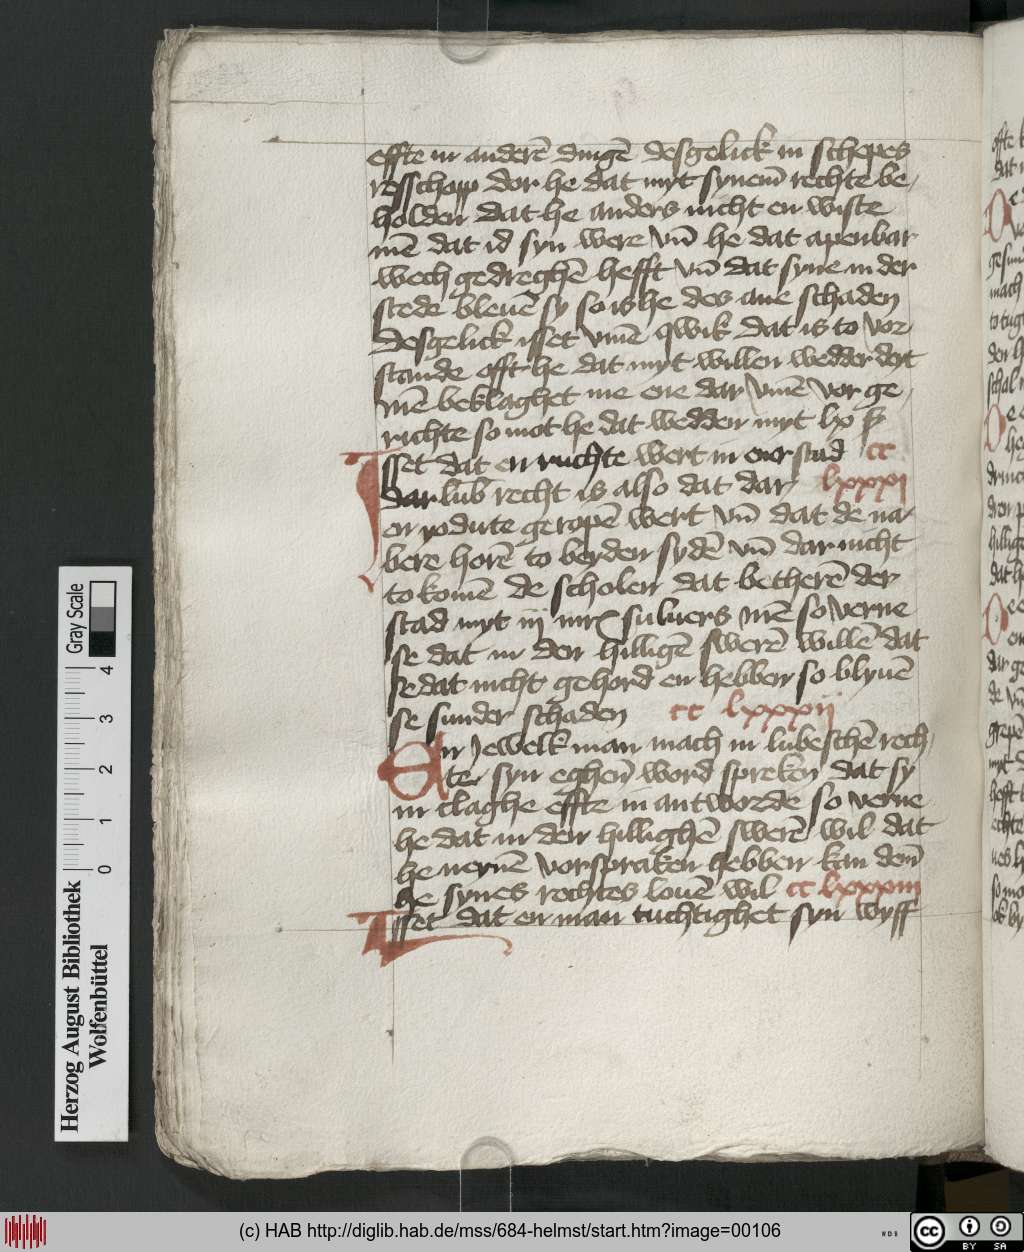 effte in anderē dingē desgelick in schepes
resschopp dor he dat myt synem̄ rechte be
holden dat he anders nicht en wiste
mē dat id syn were vn̄ he dat apenbar
wech gedreghē hefft vn̄ dat syne in der
stede bleuē sy so is he des ane schaden
Desgelick isset vmē qwik dat is to vor
stande efft he dat myt willen wedder deyt
mē beklaghet me ene dar vmē vor ge
richte so mot he dat wedden myt lx ß
Isset dat en ruchte wert in ener stad cc
dar lub̄ recht is also dat dar lxxxi
en yodute geropē wert vn̄ dat de na
bere horē to beyden sydē vn̄ dar nicht
to komē de scholen dat betherē der
stad myt iij mr̄ suluers mē so verne
se dat in den hilligē swerē willē dat
se dat nicht gehord en hebben so blyuē
se sunder schaden cc lxxxij
En jewelk man mach in lubeschē rech
te syn eghen̄ word spreken dat sy
in claghe effte in antworde so verne
he dat in den hillighē swerē wil dat
he nenē vorspraken hebben kan dem̄
he synes rechtes louē wil cc lxxxiii
Isset dat en man tuchtighet syn wyff
Herzog August Bibliothek
Wolfenbüttel
Gray Scale
0 1 2 3 4
(c) HAB http://diglib.hab.de/mss/684-helmst/start.htm?image=00106
WDB
cc BY SA